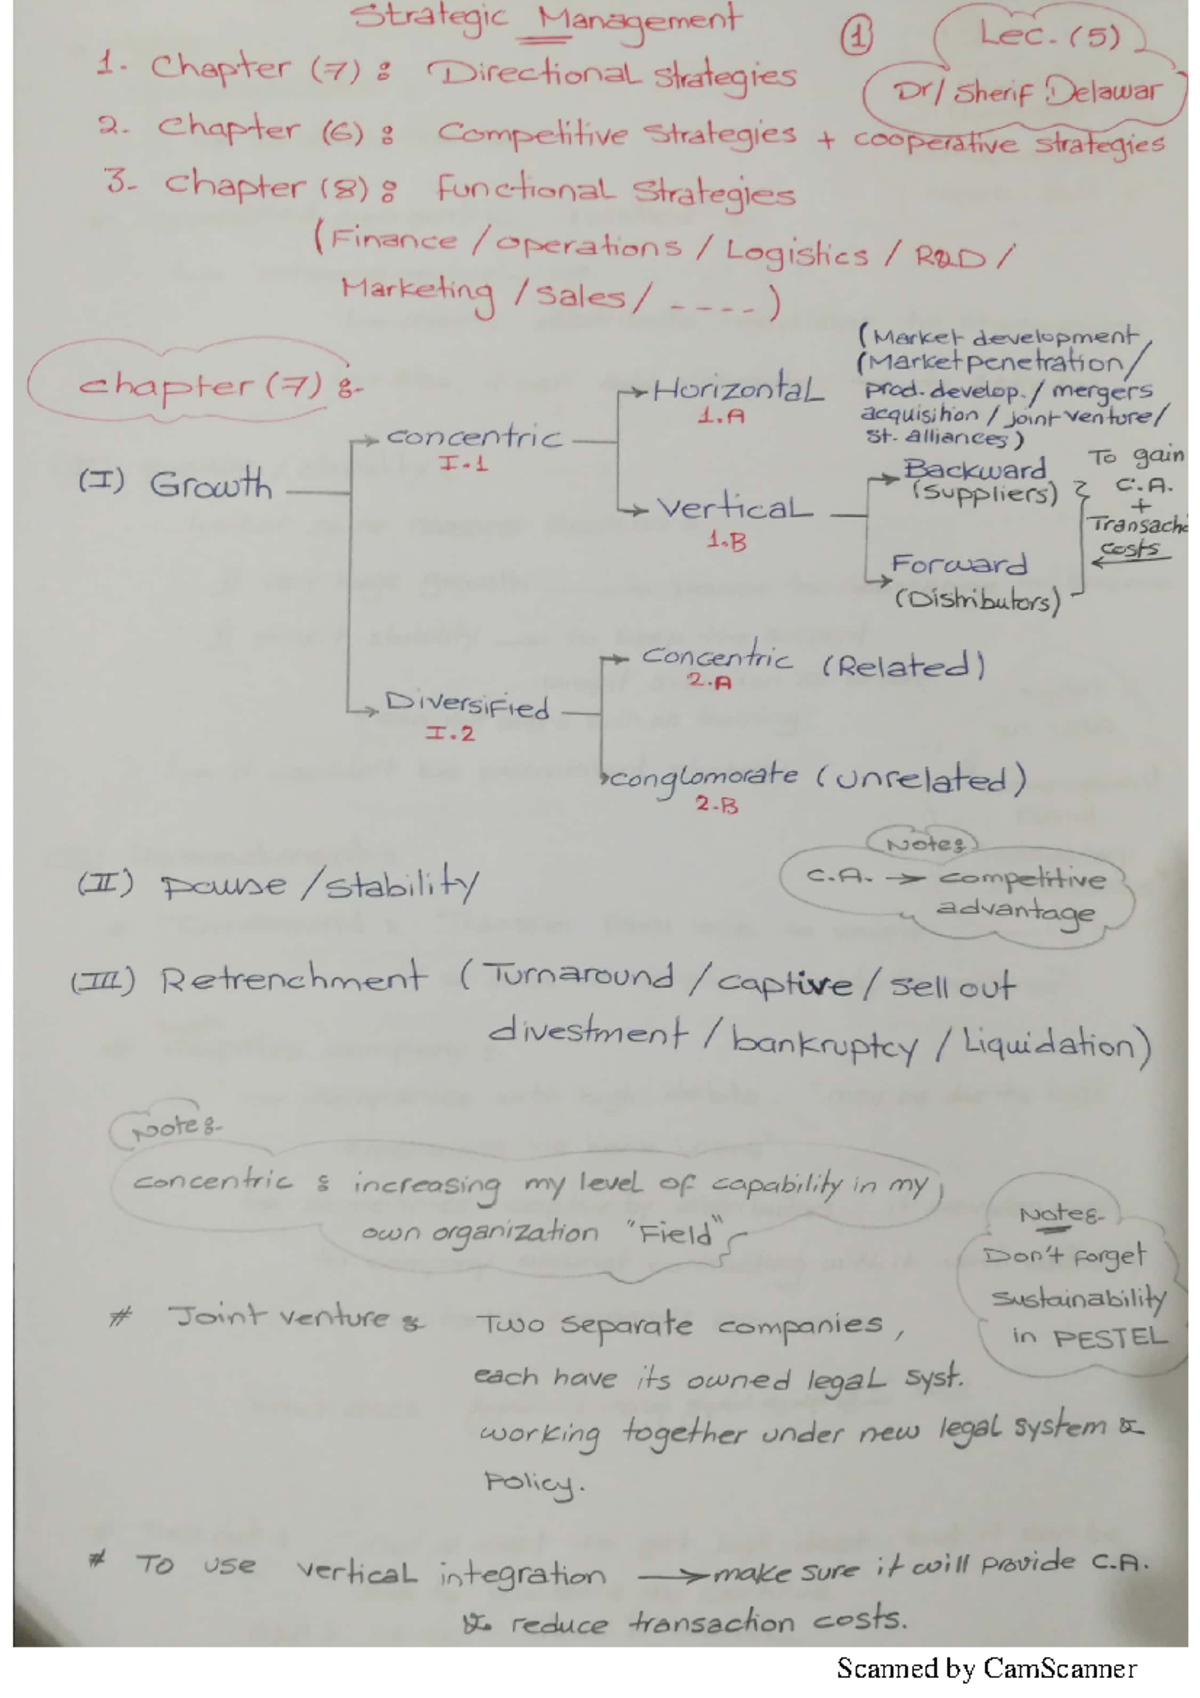 Strategic Management
1
Lec. (5)
Dr/ Sherif Delawar
1. Chapter (7) : Directional Strategies
2. Chapter (6) : Competitive Strategies + cooperative strategies
3- Chapter (8) : Functional Strategies
(Finance / operations / Logistics / R&D /
Marketing / Sales / ----)
chapter (7) :-
(I) Growth
concentric
I.1
Horizontal
1.A
(Market development
(Market penetration /
prod. develop. / mergers
acquisition / joint venture /
st. alliances)
Vertical
1.B
Backward
(Suppliers)
Forward
(Distributors)
To gain
C.A.
+
Transacti
costs
Diversified
I.2
Concentric (Related)
2.A
conglomorate (unrelated)
2.B
Note:
C.A. → competitive
advantage
(II) Pause / stability
(III) Retrenchment (Turnaround / captive / sell out
divestment / bankruptcy / Liquidation)
Note:-
concentric : increasing my level of capability in my
own organization "Field"
Note:-
Don't forget
sustainability
in PESTEL
# Joint venture : Two separate companies,
each have its owned legal syst.
working together under new legal system &
Policy.
# To use vertical integration → make sure it will provide C.A.
& reduce transaction costs.
Scanned by CamScanner